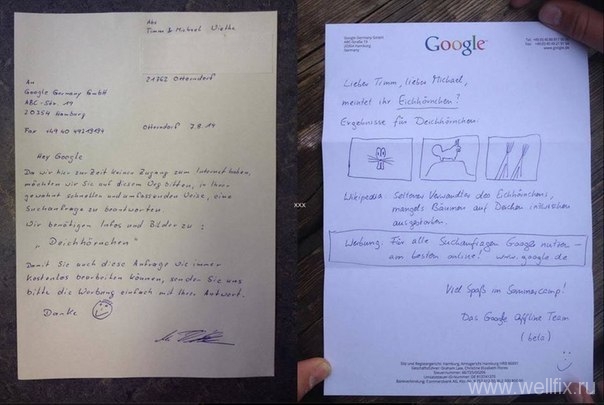 Abs.
Timm & Michael Wiethe
21762 Otterndorf
An
Google Germany GmbH
ABC-Str. 19
20354 Hamburg
Fax +49 40 49219194
Otterndorf 7.8.14
Hey Google
Da wir hier zur Zeit keinen Zugang zum Internet haben,
möchten wir Sie auf diesem Weg bitten, in Ihrer
gewohnt schnellen und umfassenden Weise, eine
Suchanfrage zu beantworten.
Wir benötigen Infos und Bilder zu:
"Deichhörnchen"
Damit Sie auch diese Anfrage wie immer
kostenlos bearbeiten können, senden Sie uns
bitte die Werbung einfach mit Ihrer Antwort.
Danke
xxx
Google Germany GmbH
ABC-Straße 19
20354 Hamburg
Germany
Google
www.google.de
Lieber Timm, lieber Michael,
meintet ihr Eichhörnchen?
Ergebnisse für Deichhörnchen:
Wikipedia: Seltener Verwandter des Eichhörnchens,
mangels Bäumen auf Deichen inzwischen
ausgestorben.
Werbung: Für alle Suchanfragen Google nutzen –
am besten online! www.google.de
Viel Spaß im Sommercamp!
Das Google Offline Team
(beta)
www.wellfix.ru